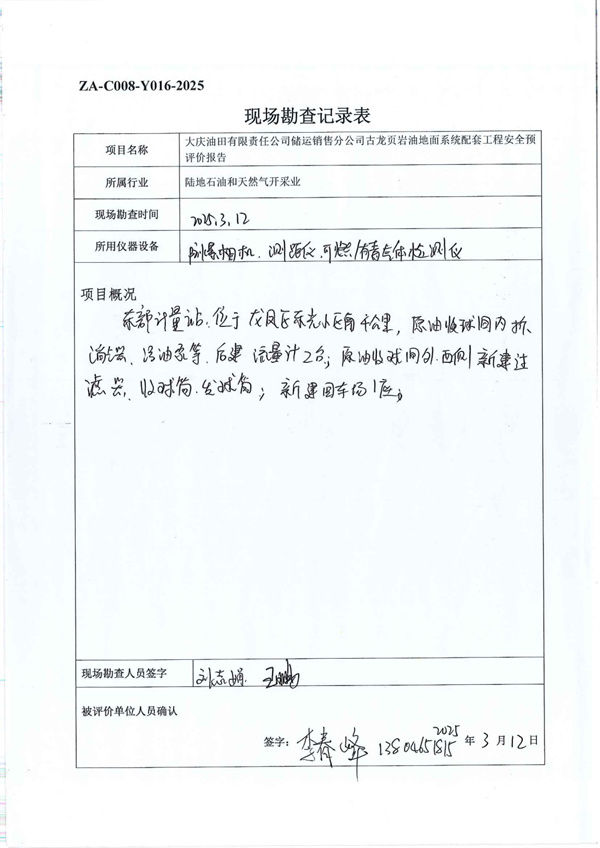 ZA-C008-Y016-2025
现场勘查记录表
项目名称
大庆油田有限责任公司储运销售分公司古龙页岩油地面系统配套工程安全预
评价报告
所属行业
陆地石油和天然气开采业
现场勘查时间
2025.3.12
所用仪器设备
防爆相机、测距仪、可燃/有毒气体检测仪
项目概况
东部计量站,位于龙凤区东光小区南 千公里,原油收球间内拆
油泵等,后建 流量计2台;原油收球间外西侧新建过
滤器、收球筒、发球筒;新建回车场1座。
现场勘查人员签字
刘志娟 王鹏
被评价单位人员确认
签字:李春峰 13804651815 2025年3月12日